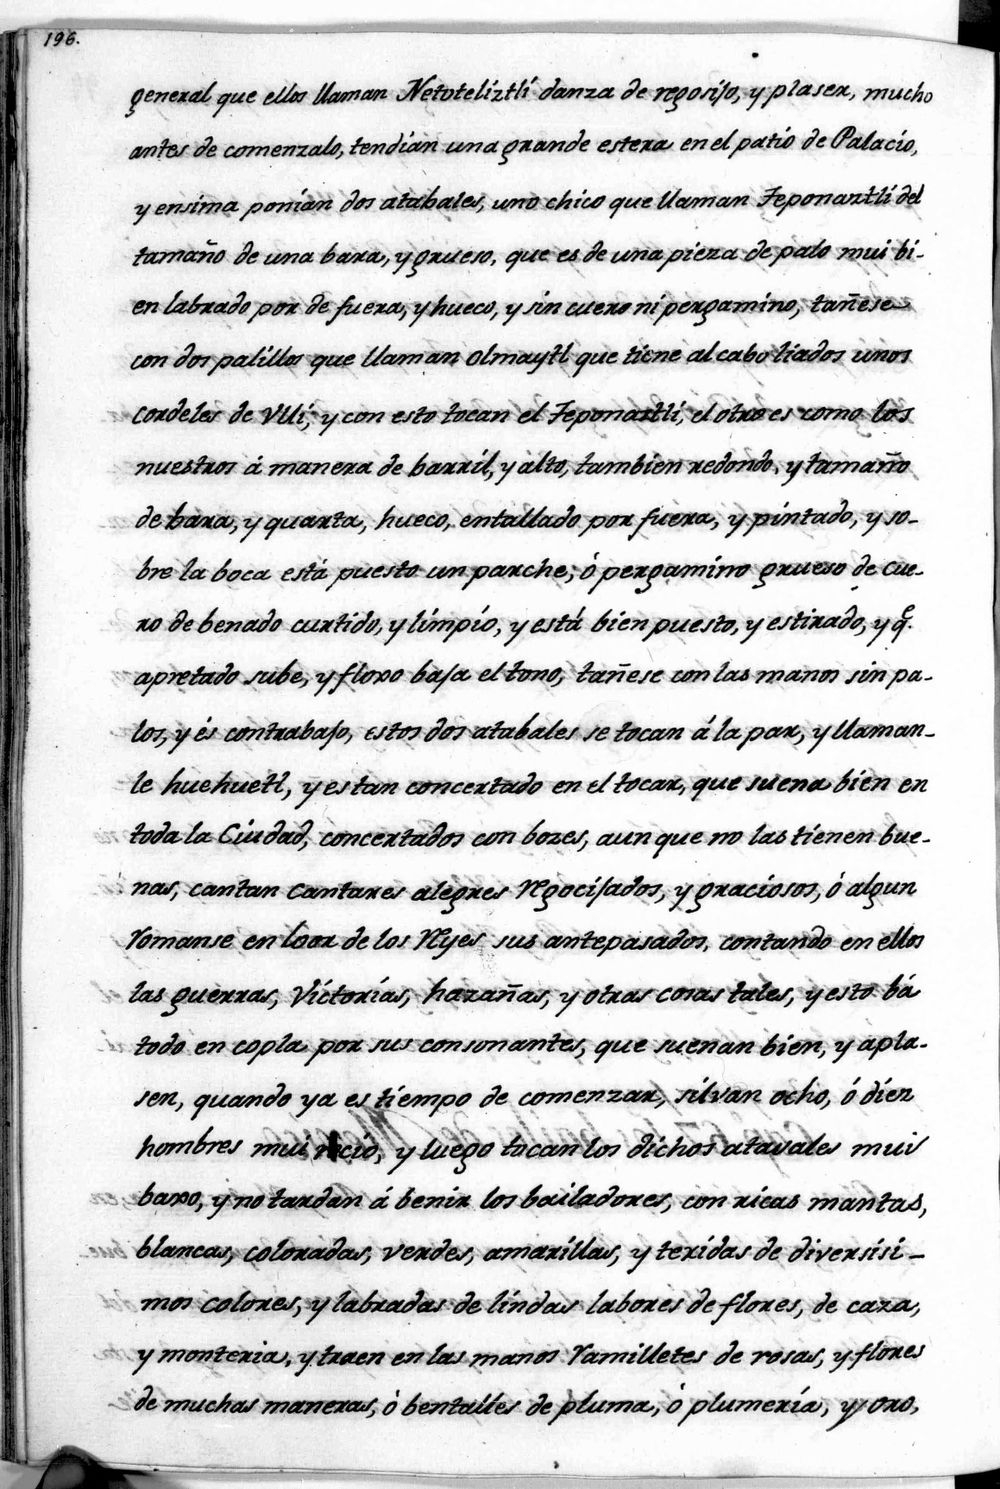 196.
general que ellos llaman Netoteliztli danza de regosijo, y plaser, mucho
antes de comenzalo, tendian una grande estera en el patio de Palacio,
y ensima ponian dos atabales, uno chico que llaman Teponaztli del
tamaño de una bara, y grueso, que es de una pieza de palo mui bi-
en labrado por de fuera, y hueco, y sin cuero ni pergamino, tañese
con dos palillos que llaman olmaytl que tiene al cabo liados unos
cordeles de Vlli, y con esto tocan el Teponaztli, el otro es como los
nuestros á manera de barril, y alto, tambien redondo, y tamaño
de bara, y quarta, hueco, entallado por fuera, y pintado, y so-
bre la boca está puesto un parche, ó pergamino grueso de cue-
ro de benado curtido, y limpio, y está bien puesto, y estirado, y q.e
apretado sube, y floxo baja el tono, tañese con las manos sin pa-
los, y és contrabajo, estos dos atabales se tocan á la par, y llaman-
le huehuetl, y es tan concertado en el tocar, que suena bien en
toda la Ciudad, concertados con bozes, aun que no las tienen bue-
nas, cantan cantares alegres regocijados, y graciosos, ó algun
romanse en loor de los Reyes sus antepasados, contando en ellos
las guerras, Victorias, hazañas, y otras cosas tales, y esto bá
todo en copla por sus consonantes, que suenan bien, y apla-
sen, quando ya es tiempo de comenzar, silvan ocho, ó diez
hombres mui recio, y luego tocan los dichos atavales mui
baxo, y no tardan á benir los bailadores, con ricas mantas,
blancas, coloradas, verdes, amarillas, y texidas de diversisi-
mos colores, y labradas de lindas labores de flores, de caza,
y monteria, y traen en las manos ramilletes de rosas, y flores
de muchas maneras, ò bentalles de pluma, ò plumería, y oro,